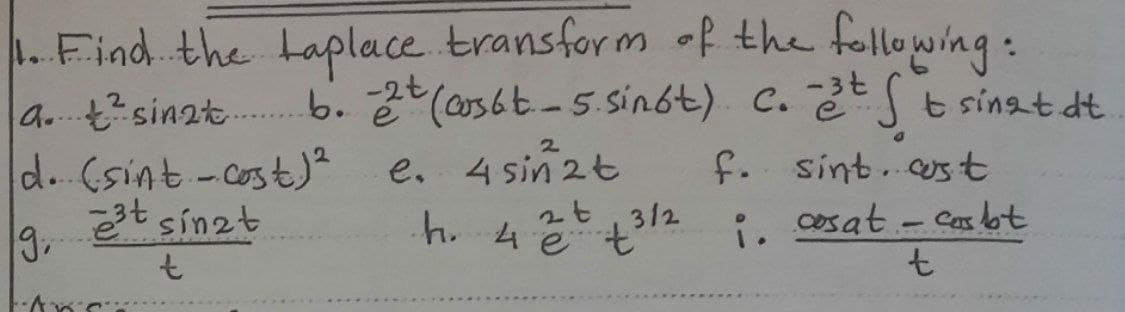 1. Find the Laplace transform of the following:
a. t² sin2t b. e^-2t (cos6t - 5. sin6t) c. e^-3t ∫₀^t t sin2t dt
d. (sint - cost)² e. 4 sin² 2t f. sint. cost
g. e^-3t sin2t / t h. 4 e^2t t^3/2 i. cosat - cosbt / t